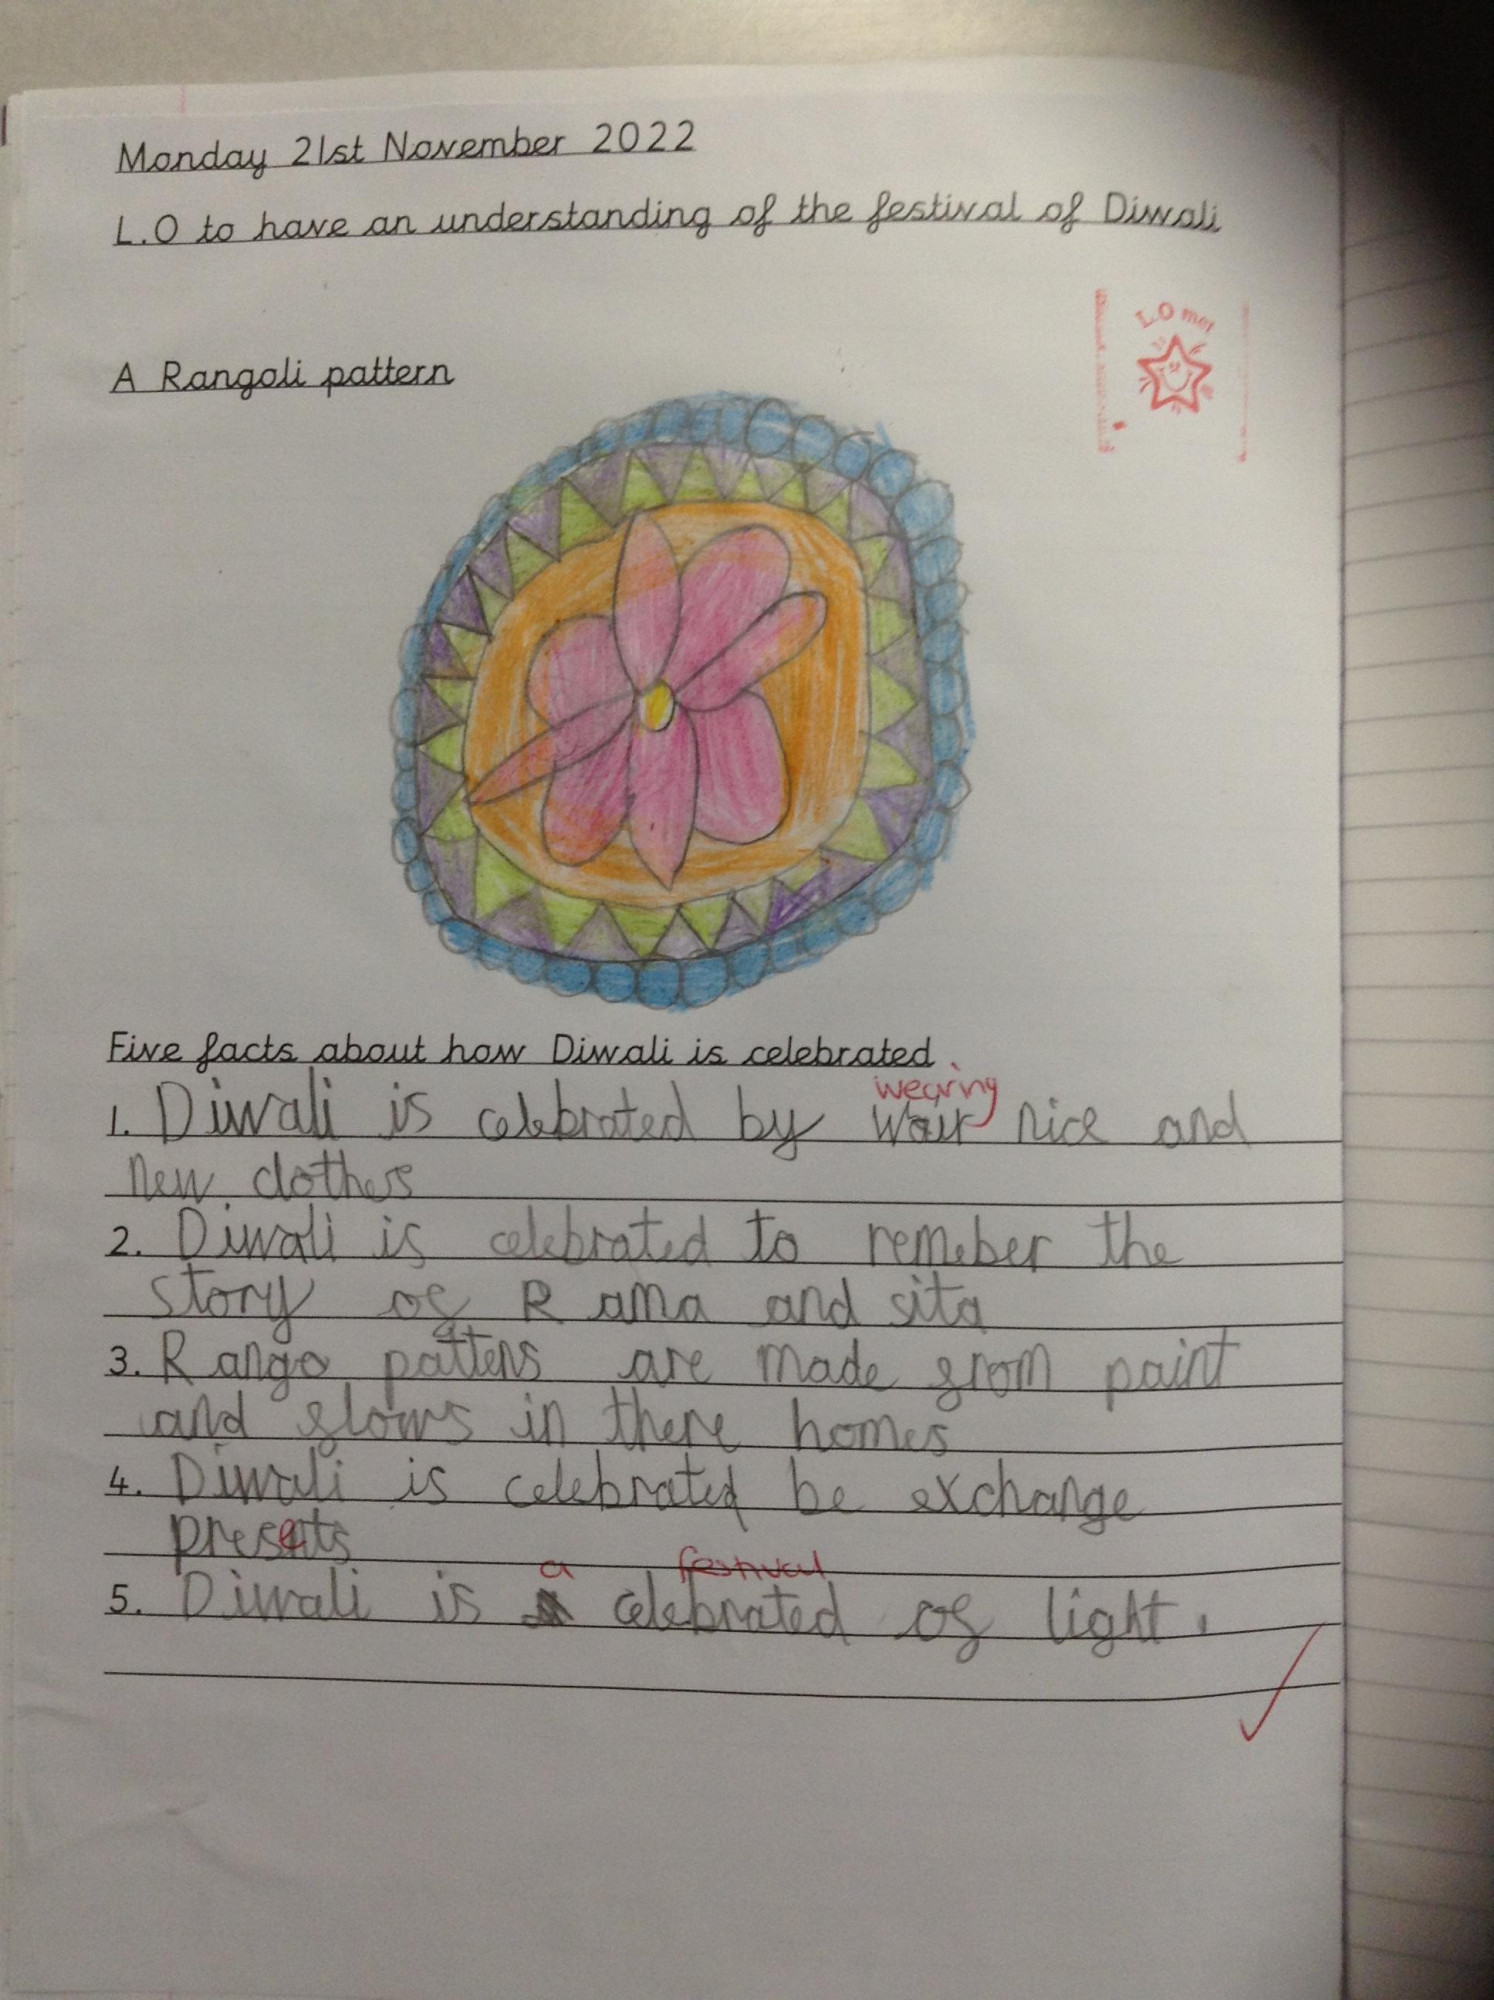 Monday 21st November 2022
L.O to have an understanding of the festival of Diwali
L.O met
A Rangoli pattern
Five facts about how Diwali is celebrated.
wearing
1. Diwali is celebrated by wair nice and
new clothes
2. Diwali is celebrated to remeber the
story of Rama and sita
3. Rango pattens are made from paint
and flows in there homes
4. Diwali is celebrated be exchange
presets
a festival
5. Diwali is celebrated of light.